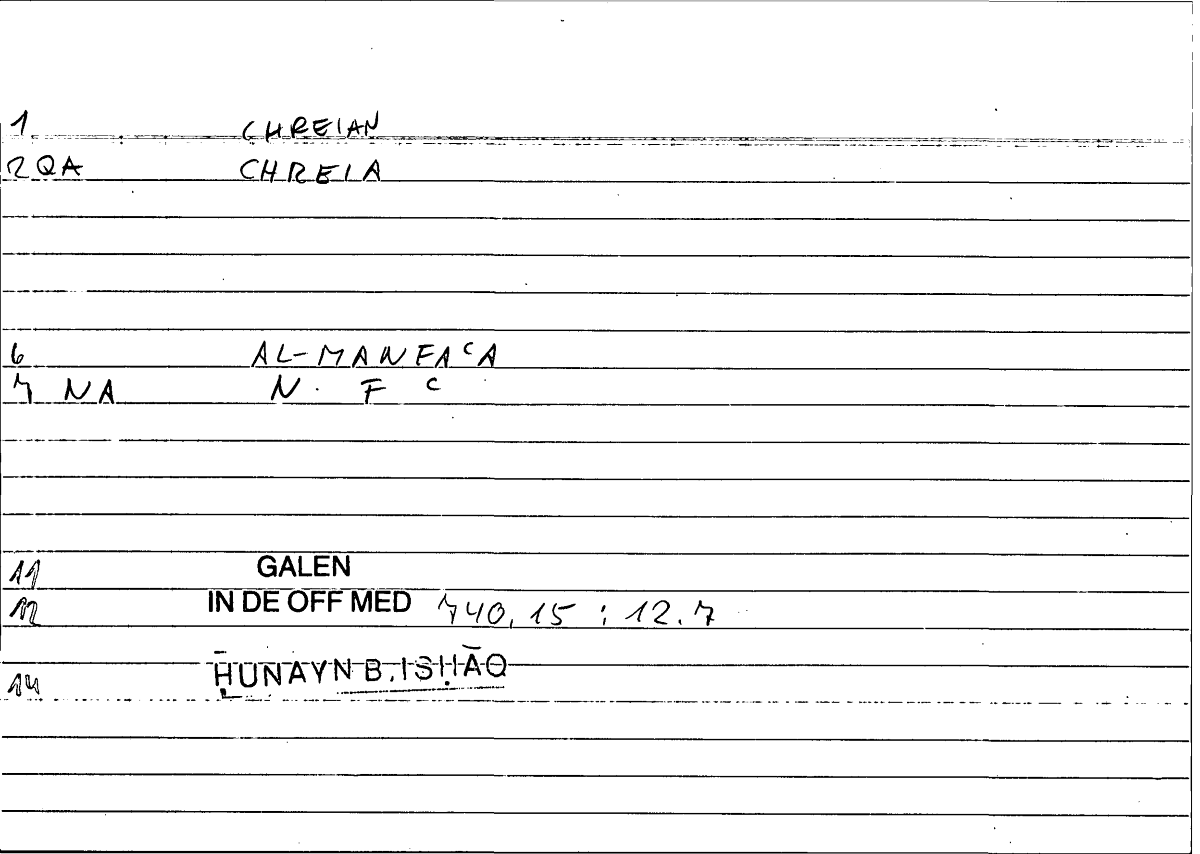 1 CHREIAN
2 QA CHREIA
6 AL-MANFAᶜA
7 NA N. F ᶜ
11 GALEN
12 IN DE OFF MED 740,15 : 12.7
14 ḤUNAYN B. ISḤĀQ